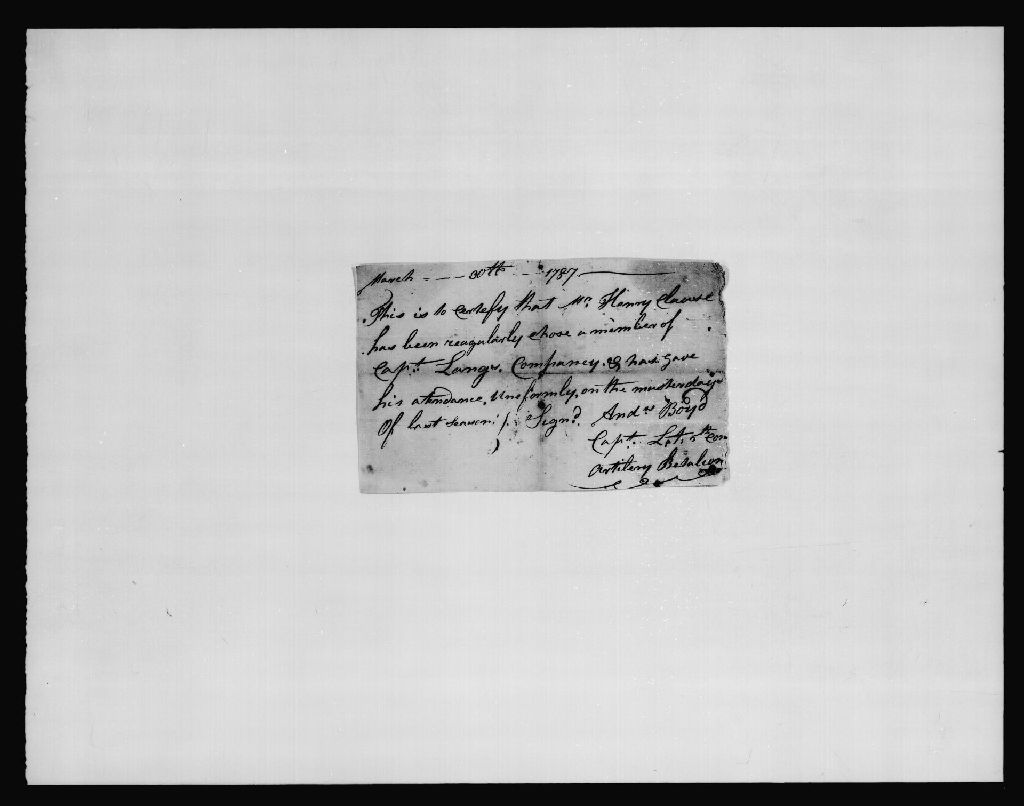 March - - - 30th - 1787
This is to certefy that Mr. Henry Clause
has been reagularly chose a member of
Capt. Langs. Companey. & has gave
his atendance, Uneformly, on the musterdays
Of last season; Signd. Andw Boyd
Capt. Lt.
Artilery Betalion